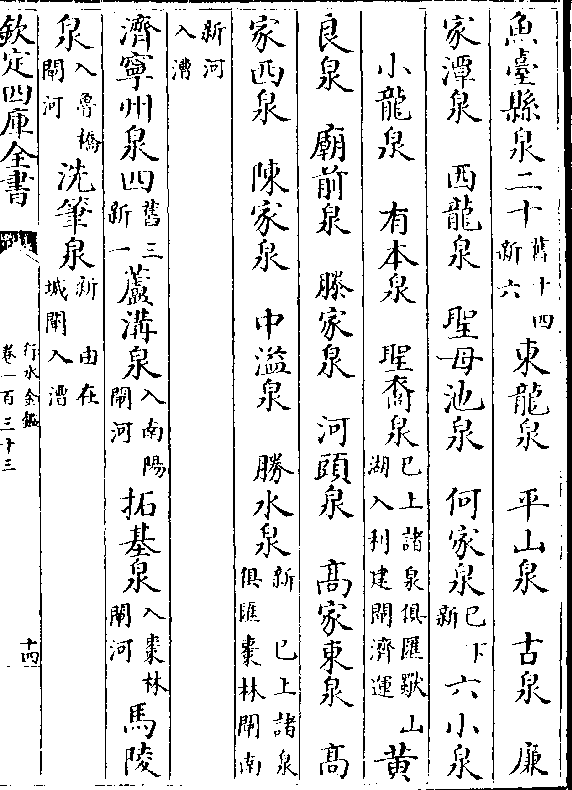 魚臺縣泉二十舊十四新六東龍泉 平山泉 古泉 廉
家潭泉 西龍泉 聖母池泉 何家泉巳下新六小泉
小龍泉 有本泉 聖裔泉巳上諸泉俱匯獨山湖入利建閘濟運黃
良泉 廟前泉 滕家泉 河頭泉 高家東泉 高
家西泉 陳家泉 中溢泉 勝水泉新 巳上諸泉俱匯棗林閘南
新河入漕
濟寧州泉四舊三新一蘆溝泉入南陽閘河拓基泉入棗林閘河馬陵
泉入魯橋閘河沈筆泉新 由在城閘入漕
欽定四庫全書
行水金鑑
卷一百三十三
十四